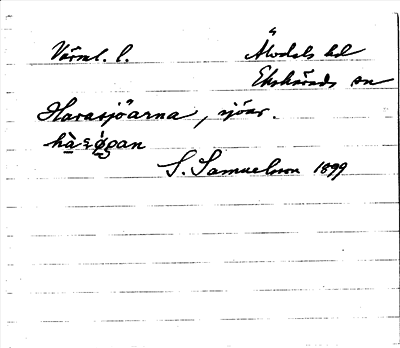 Värml. l. Älvdals hd
Ekshärads sn
Harasjöarna, sjöar.
S. Samuelsson 1899